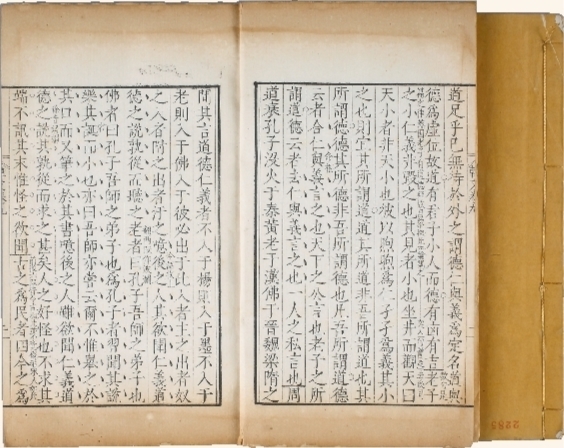 道足乎已無待於外之謂德仁與義爲定名道與
德爲虛位故道有君子小人而德有凶有吉老子
之小仁義非毀之也其見者小也坐井而觀天曰
天小者非天小也彼以煦煦爲仁孑孑爲義其小
之也則宜其所謂道道其所道非吾所謂道也其
所謂德德其所德非吾所謂德也凡吾所謂道德
云者合仁與義言之也天下之公言也老子之所
謂道德云者去仁與義言之也一人之私言也周
道衰孔子沒火于秦黃老于漢佛于晉魏梁隋之
間其言道德仁義者不入于楊則入于墨不入于
老則入于佛入于彼必出于此入者主之出者奴
之入者附之出者汙之噫後之人其欲聞仁義道
德之說孰從而聽之老者曰孔子吾師之弟子也
佛者曰孔子吾師之弟子也爲孔子者習聞其說
樂其誕而小也亦曰吾師亦嘗云爾不惟舉之於
其口而又筆之於其書噫後之人雖欲聞仁義道
德之說其孰從而求之甚矣人之好怪也不求其
端不訊其末惟怪之欲聞古之爲民者四今之爲
2285